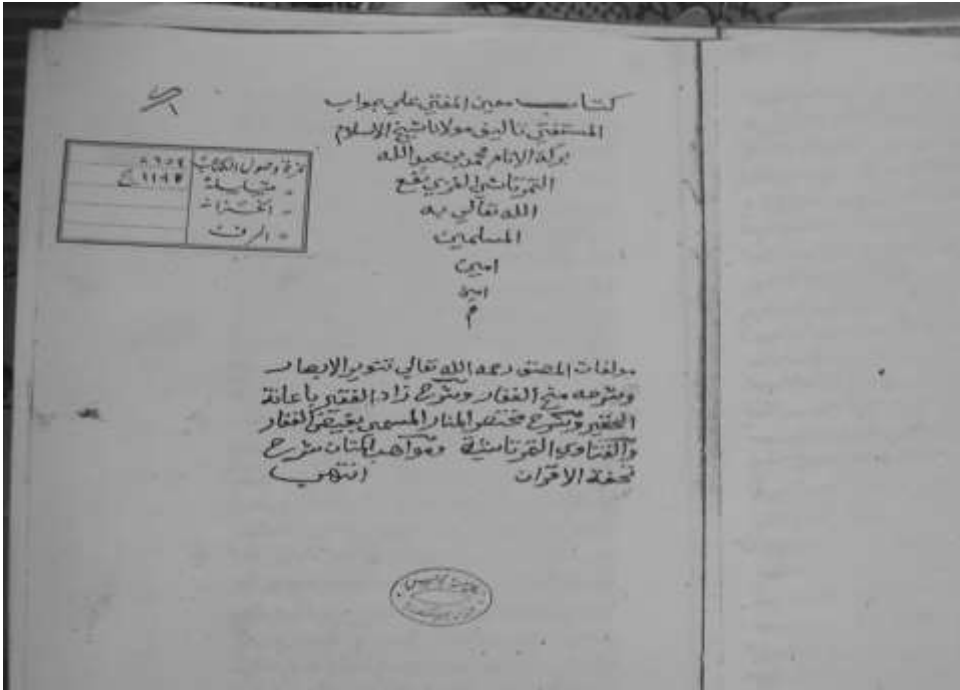 كتاب معين المفتي علي جواب
المستفتي تاليف مولانا شيخ الاسلام
بركة الانام محمد بن عبد الله
التمرتاشي الغزي نفع
الله تعالي به
المسلمين
امين
امين
م
نمرة وصول الكتاب
الخزانة
الرف
مولفات المصنف رحمه الله تعالي تنوير الابصار
وشرحه منح الغفار وشرح زاد الفقير باعانة
الحقير وشرح مختصر المنار المسمي بفيض الغفار
والفتاوي التمرتاشية ومواهب المنان شرح
تحفة الاقران انتهي